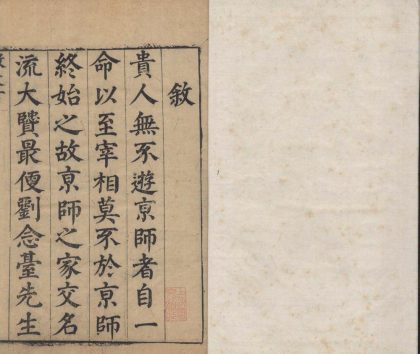 敘
貴人無不遊亰師者自一
命以至宰相莫不於亰師
終始之故亰師之家交名
流大贒最便劉念臺先生